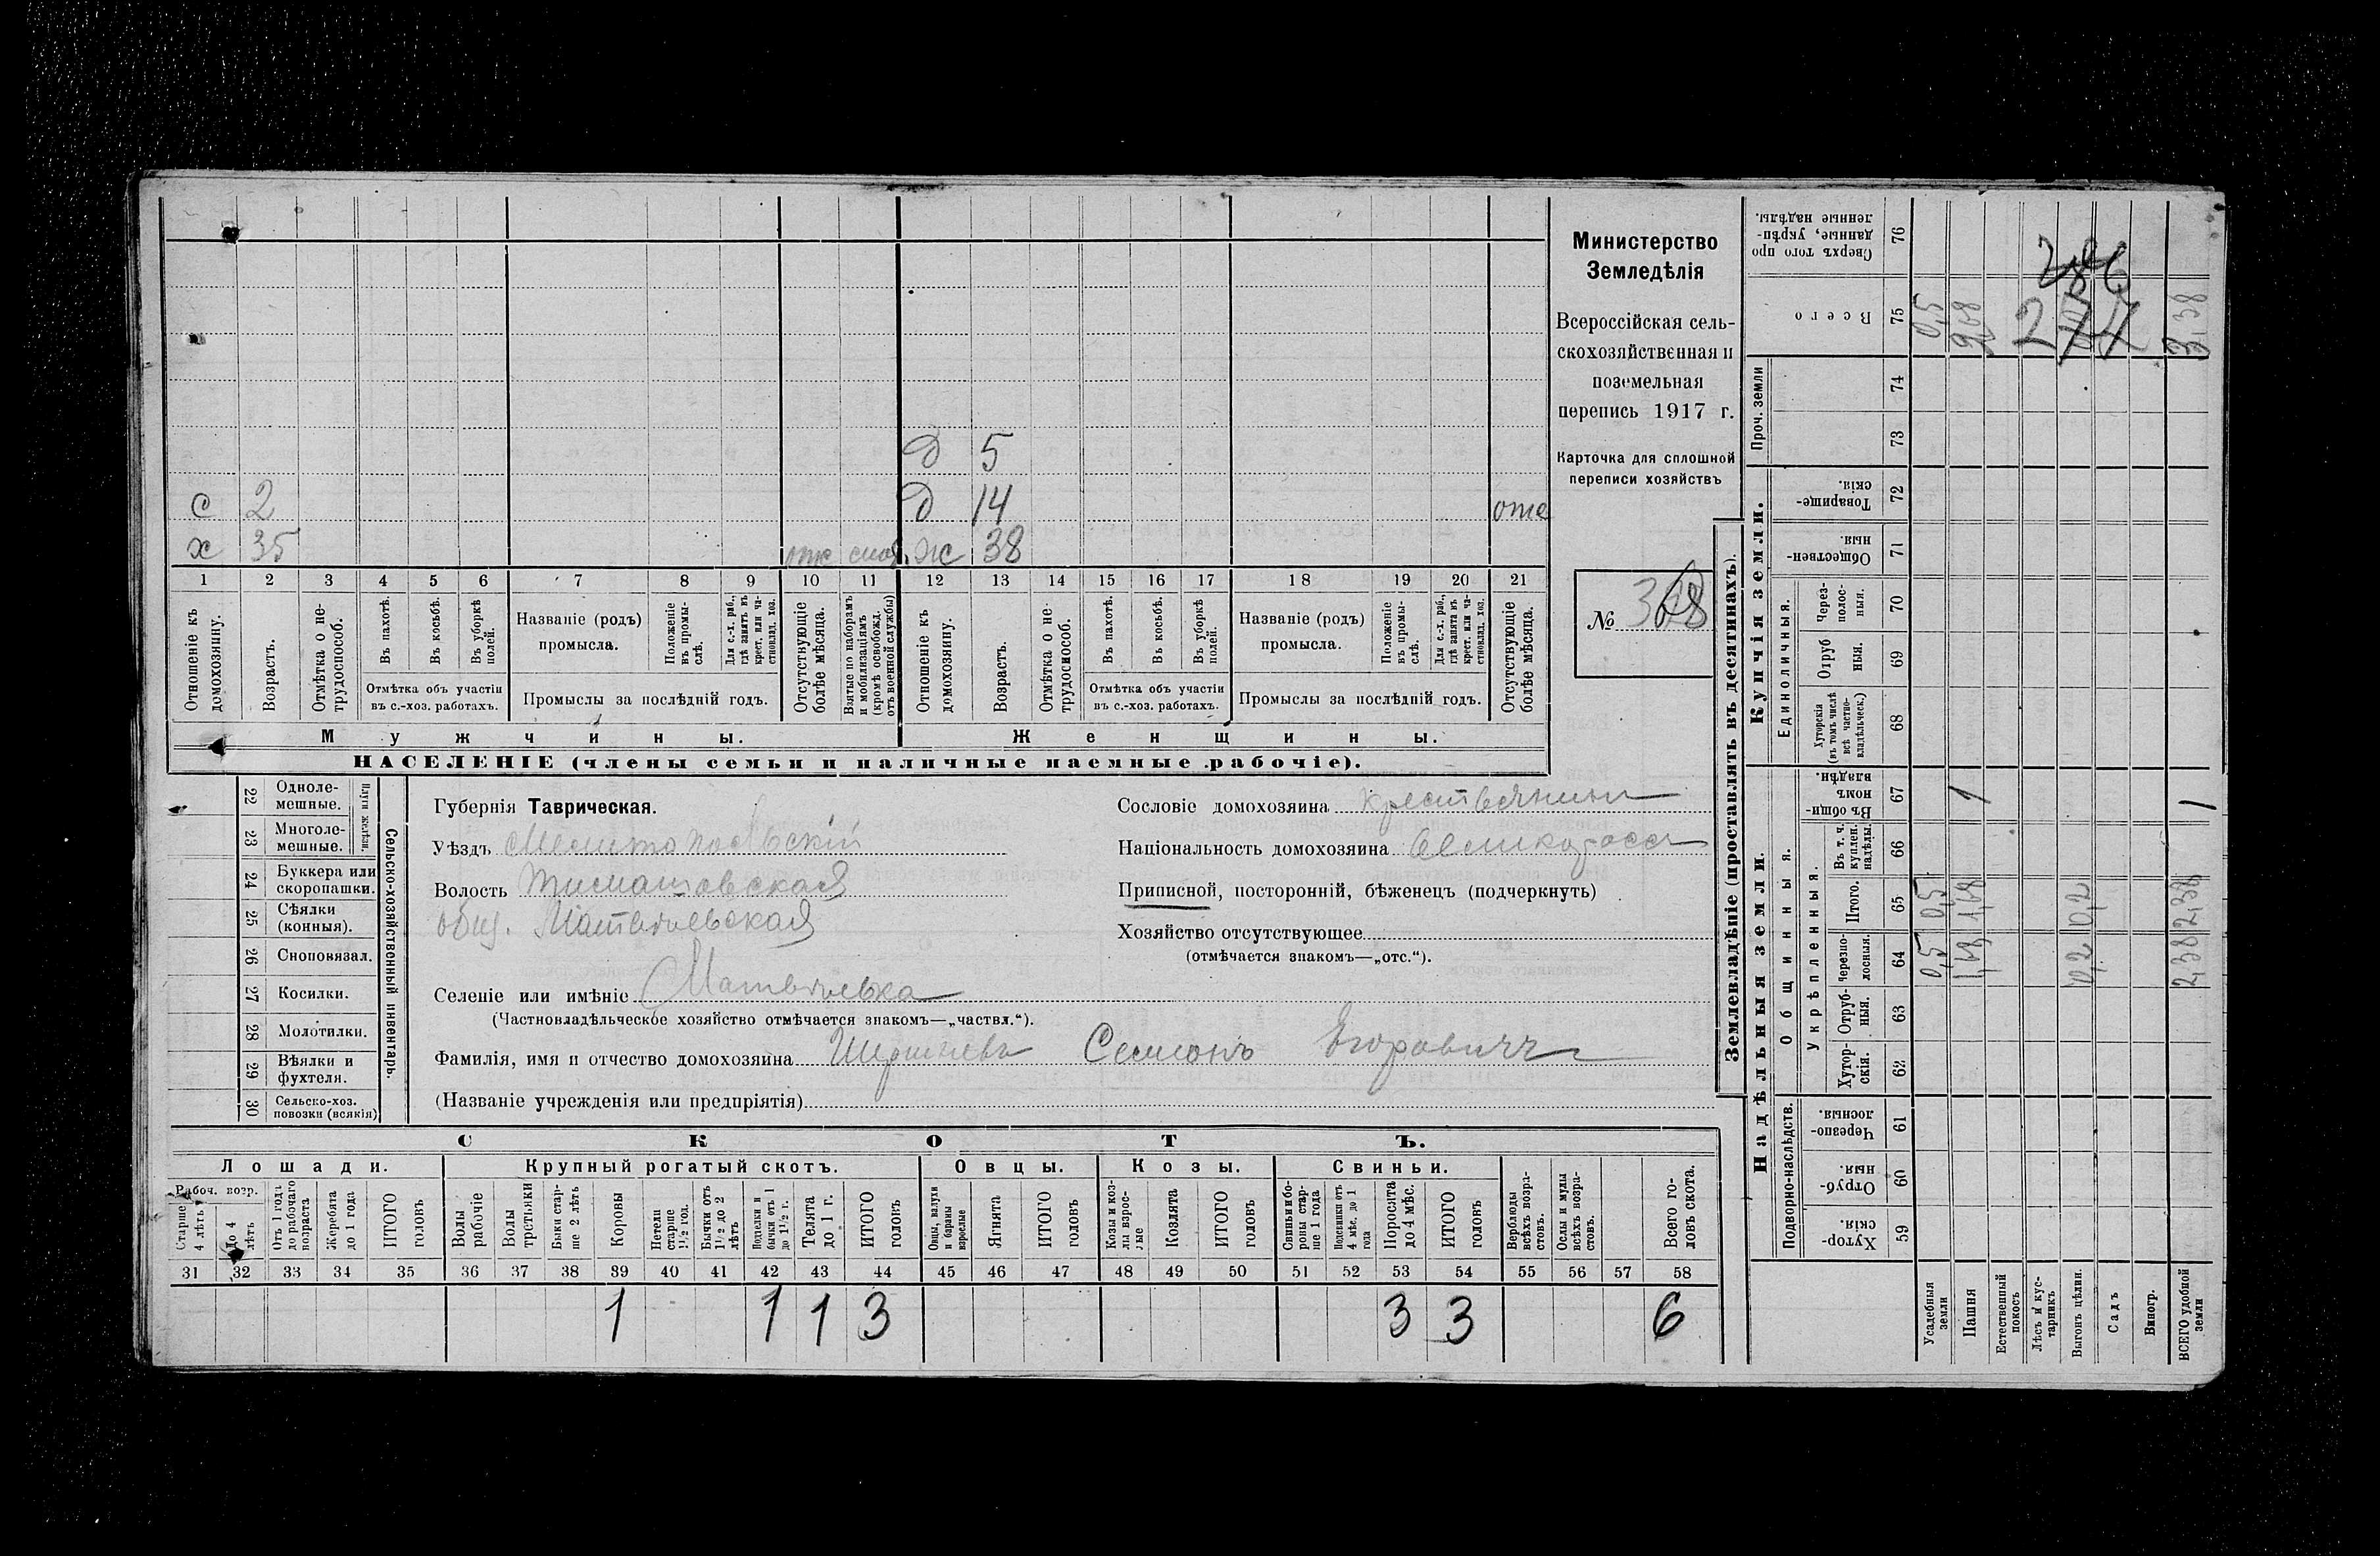 Министерство
Земледѣлія
Всероссійская сель-
скохозяйственная и
поземельная
перепись 1917 г.
Карточка для сплошной
переписи хозяйствъ
№ 368
д 5
с 2 д 14 отс
х 35 отс ж 38
1 2 3 4 5 6 7 8 9 10 11 12 13 14 15 16 17 18 19 20 21
Отношеніе къ домохозяину.
Возрастъ.
Отмѣтка о не-трудоспособ.
Въ пахотѣ.
Въ косьбѣ.
Въ уборкѣ полей.
Отмѣтка объ участіи въ с.-хоз. работахъ.
Названіе (родъ) промысла.
Положеніе въ промы-слѣ.
Для с.-х. раб., гдѣ занятъ въ крест. или ча-стновлад. хоз.
Промыслы за послѣдній годъ.
Отсутствующіе болѣе мѣсяца.
Взятые по наборамъ и мобилизаціямъ (кромѣ освобожд. отъ военной службы)
Отношеніе къ домохозяину.
Возрастъ.
Отмѣтка о не-трудоспособ.
Въ пахотѣ.
Въ косьбѣ.
Въ уборкѣ полей.
Отмѣтка объ участіи въ с.-хоз. работахъ.
Названіе (родъ) промысла.
Положеніе въ промы-слѣ.
Для с.-х. раб., гдѣ занята въ крест. или ча-стновлад. хоз.
Промыслы за послѣдній годъ.
Отсутствующіе болѣе мѣсяца.
Мужчины. Женщины.
НАСЕЛЕНІЕ (члены семьи и наличные наемные рабочіе).
22 Одноле-мешные.
23 Многоле-мешные.
Плуги желѣзн.
24 Буккера или скоропашки.
25 Сѣялки (конныя).
26 Сноповязал.
27 Косилки.
28 Молотилки.
29 Вѣялки и фухтеля.
30 Сельско-хоз. повозки (всякія)
Сельско-хозяйственный инвентарь.
Губернія Таврическая.
Уѣздъ Мелитопольскій
Волость Тимашовская
общ. Матвѣевская
Селеніе или имѣніе Матвѣевка
(Частновладѣльческое хозяйство отмѣчается знакомъ—„частвл.“).
Фамилія, имя и отчество домохозяина Семіонъ Егоровичъ
(Названіе учрежденія или предпріятія)
Сословіе домохозяина крестьянинъ
Національность домохозяина великороссъ
Приписной, посторонній, бѣженецъ (подчеркнуть)
Хозяйство отсутствующее
(отмѣчается знакомъ—„отс.“).
СКОТЪ.
Лошади. Крупный рогатый скотъ. Овцы. Козы. Свиньи.
Рабоч. возр.
Старше 4 лѣтъ
До 4 лѣтъ
Отъ 1 года до рабочаго возраста
Жеребята до 1 года
ИТОГО головъ
Волы рабочіе
Волы третьяки
Быки стар-ше 2 лѣтъ
Коровы
Нетели старше 1½ год.
Бычки отъ 1½ до 2 лѣтъ
Подтелки и бычки отъ 1 до 1½ г.
Телята до 1 г.
ИТОГО головъ
Овцы, валухи и бараны взрослые
Ягнята
ИТОГО головъ
Козы и коз-лы взрос-лые
Козлята
ИТОГО головъ
Свиньи и бо-ровы стар-ше 1 года
Подсвинки отъ 4 мѣс. до 1 года
Поросята до 4 мѣс.
ИТОГО головъ
Верблюды всѣхъ возра-стовъ.
Ослы и мулы всѣхъ возра-стовъ.
Всего го-ловъ скота.
31 32 33 34 35 36 37 38 39 40 41 42 43 44 45 46 47 48 49 50 51 52 53 54 55 56 57 58
1 1 1 3 3 3 6
Землевладѣніе (проставлять въ десятинахъ).
Купчія земли.
Надѣльныя земли.
Сверхъ того про данные, укрѣп-ленные надѣлы. 76
Всего 75 0,5 3,38
Проч. земли 74 73
Товарище-скія. 72
Обществен-ныя. 71
Единоличныя.
Через-полос-ныя. 70
Отруб ныя. 69
Хуторскія (въ томъ числѣ всѣ частно-владѣльческ.) 68
Общинныя.
Въ общи-номъ владѣн. 67 1 1
Укрѣпленныя.
Въ т. ч. куплен. надѣлы. 66
Итого. 65 0,5 0,2 2,38
Черезпо-лосныя. 64 0,5 0,2 2,38
Отруб-ныя. 63
Хутор-скія. 62
Подворно-наслѣдств.
Черезпо-лосныя. 61
Отруб-ныя. 60
Хутор-скія. 59
Усадебныя земли
Пашня
Естественный покосъ
Лѣсъ и кус-тарникъ
Выгонъ цѣлин.
Садъ
Виногр.
ВСЕГО удобной земли